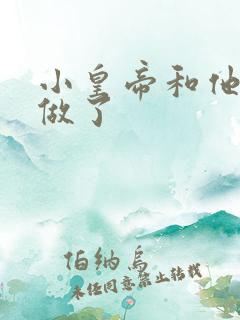 小皇帝和他
做了
伯纳乌
未经同意禁止转载